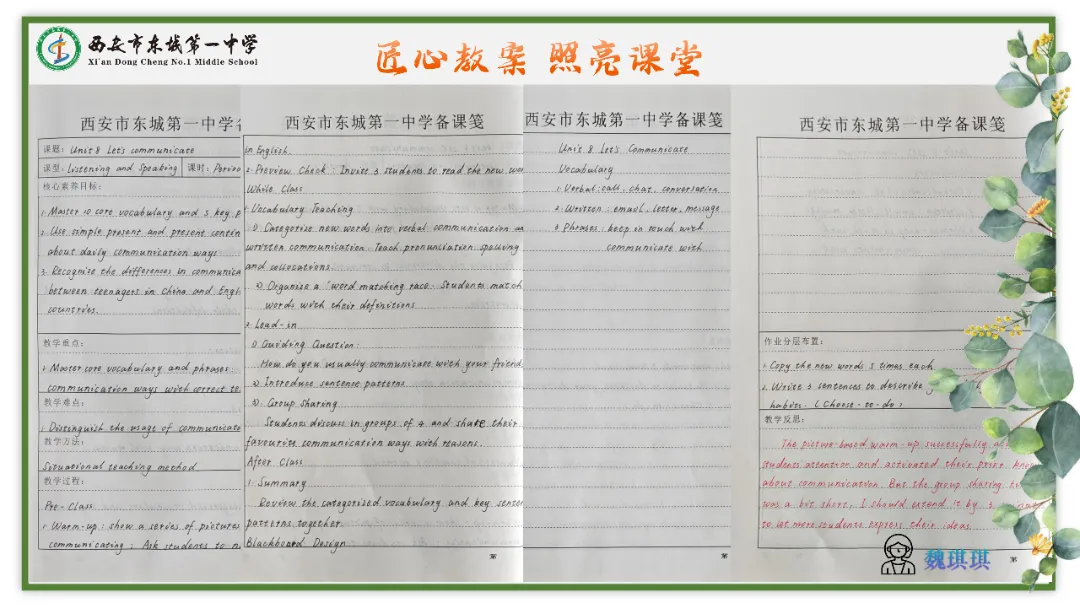 西安市东城第一中学
Xi'an Dong Cheng No.1 Middle School
匠心教案 照亮课堂
西安市东城第一中学备
课题: Unit 8 Let's communicate
课型: Listening and Speaking 课时: Period
核心素养目标:
1. Master 10 core vocabulary and 3 key
2. Use simple present and present contin
about daily communication ways
3. Recognize the differences in communica
between teenagers in China and Engl
countries.
教学重点:
1. Master core vocabulary and phrases:
communication ways with correct te
教学难点:
1. Distinguish the usage of communicate
教学方法:
Situational teaching method
教学过程:
Pre-Class
1. Warm-up: show a series of pictures
communicating; Ask students to
西安市东城第一中学备课笺
in English.
2. Preview Check: Invite 3 students to read the new wor
While Class
1. Vocabulary Teaching
1). Categorize new words into verbal communication
written communication. Teach pronunciation, spelling
and collocations.
2) Organize a "word matching race: Students match
words with their definitions
2. Lead-in
1) Guiding Question:
How do you usually communicate with your friend
2) Introduce sentence patterns
3). Group Sharing
Students discuss in groups of 4 and share their
favourite communication ways with reasons.
After Class
1. Summary
Review the categorized vocabulary and key senten
patterns together.
Blackboard Design
第
西安市东城第一中学备课笺
Unit 8 Let's Communicate
Vocabulary
1. Verbal: call, chat, conversation
2. Written: email, letter, message
3 Phrases: keep in touch with
communicate with
第
西安市东城第一中学备课笺
作业分层布置:
1. Copy the new words 3 times each
2. Write 3 sentences to describe
habits. (Choose-to-do)
教学反思:
The picture-based warm-up sucessfully
students attention and activated their prior know
about communication. But the group sharing
was a bit short, I should extend it by 3
to let more students express their ideas.
魏琪琪
第